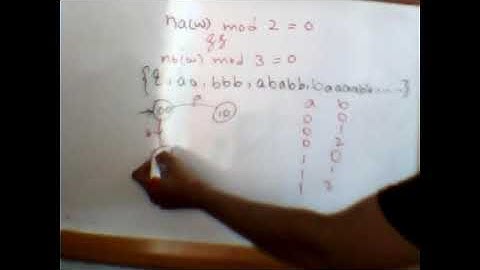 na(w) mod 2 = 0
&&
nb(w) mod 3 = 0
{ε, aa, bbb, ababb, baaaabb, ....}
a b
a
00 10
0 0
b
0 1
0 2
1 0
1 1
1 2